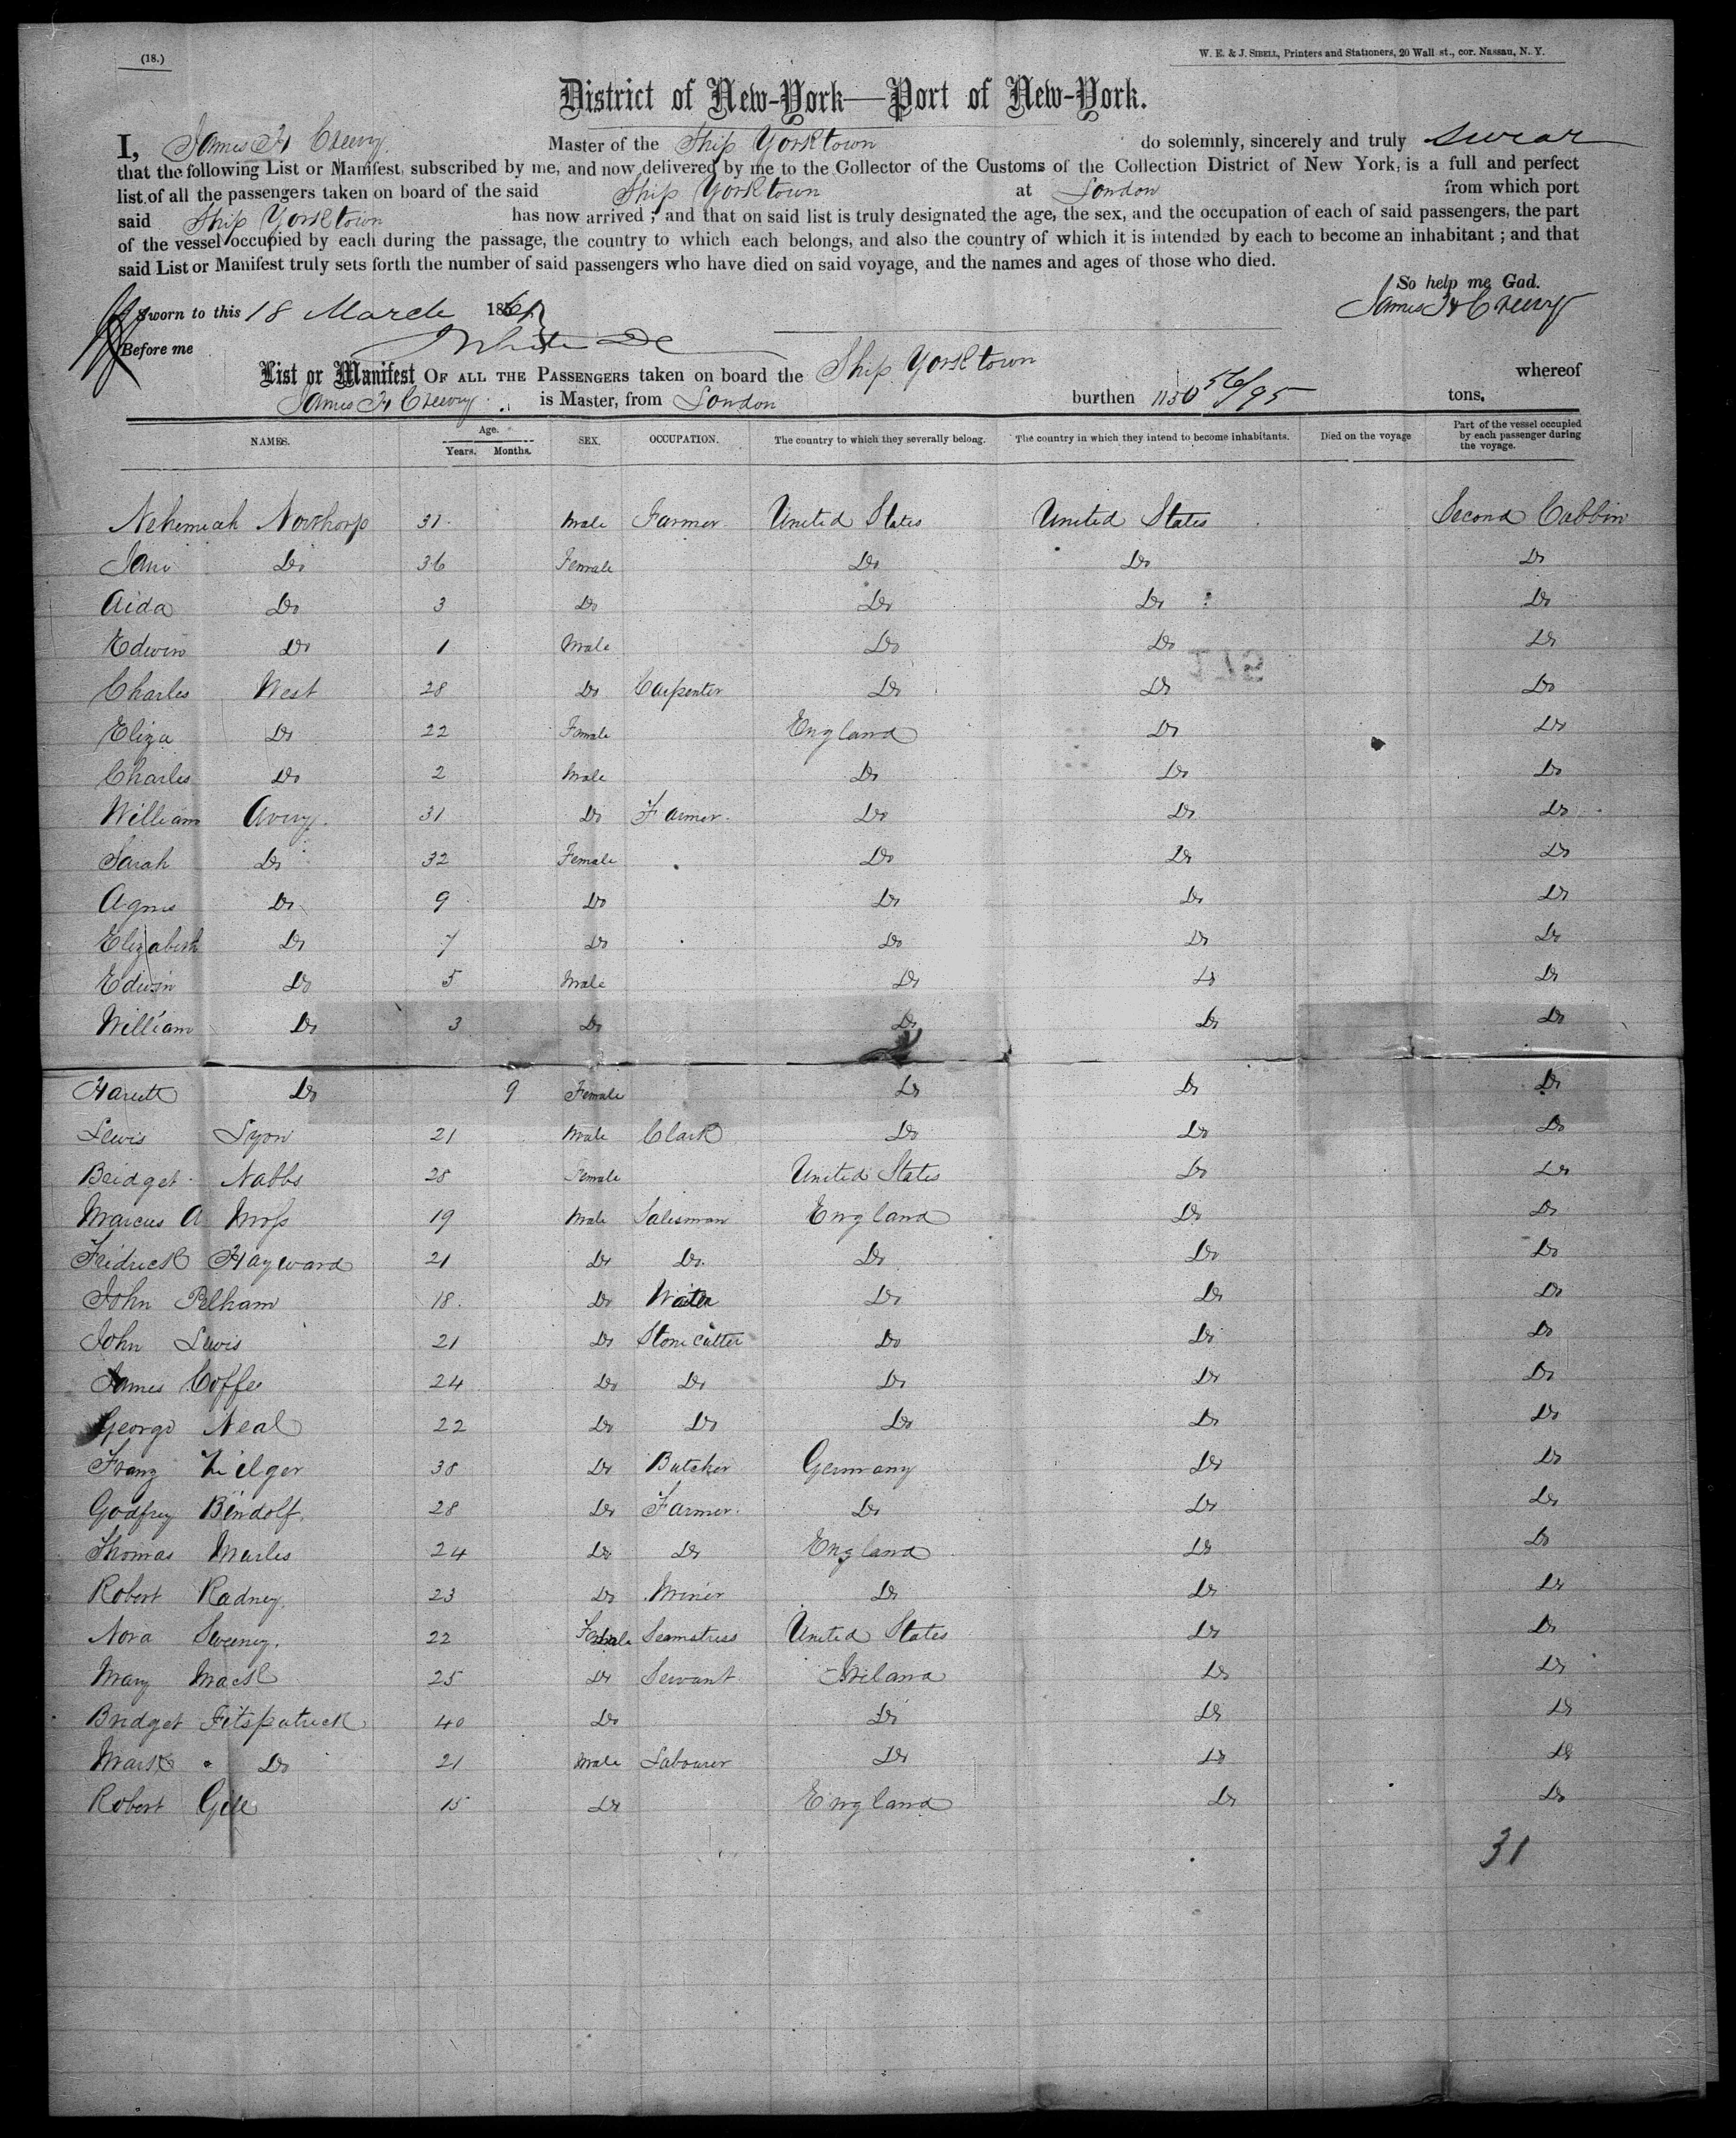 (18.)
W. E. & J. SIBELL, Printers and Stationers, 20 Wall st., cor. Nassau, N. Y.
District of New-York—Port of New-York.
I, James H Creevy Master of the Ship Yorktown do solemnly, sincerely and truly swear
that the following List or Manifest, subscribed by me, and now delivered by me to the Collector of the Customs of the Collection District of New York, is a full and perfect
list of all the passengers taken on board of the said Ship Yorktown at London from which port
said Ship Yorktown has now arrived ; and that on said list is truly designated the age, the sex, and the occupation of each of said passengers, the part
of the vessel occupied by each during the passage, the country to which each belongs, and also the country of which it is intended by each to become an inhabitant ; and that
said List or Manifest truly sets forth the number of said passengers who have died on said voyage, and the names and ages of those who died.
So help me God.
Sworn to this 18 March 1861 James H Creevy
Before me
List or Manifest OF ALL THE PASSENGERS taken on board the Ship Yorktown whereof
James H Creevy is Master, from London burthen 1150 56/95 tons.
NAMES. Age. Years. Months. SEX. OCCUPATION. The country to which they severally belong. The country in which they intend to become inhabitants. Died on the voyage Part of the vessel occupied by each passenger during the voyage.
Nehemiah Northorp 31 Male Farmer United States United States Second Cabbin
Jane Do 36 Female Do Do Do
Aida Do 3 Do Do Do Do
Edwin Do 1 Male Do Do Do
Charles West 28 Do Carpenter Do Do Do
Eliza Do 22 Female England Do Do
Charles Do 2 Male Do Do Do
William Avery 31 Do Farmer Do Do Do
Sarah Do 32 Female Do Do Do
Agnes Do 9 Do Do Do Do
Elizabeth Do 7 Do Do Do Do
Edwin Do 5 Male Do Do Do
William Do 3 Do Do Do Do
Do 9 Female Do Do Do
Lewis Lyon 21 Male Clark Do Do Do
Bridget Nabbs 28 Female United States Do Do
Marcus A Moss 19 Male Salesman England Do Do
Fridrick Hayward 21 Do Do Do Do Do
John Pelham 18 Do Waiter Do Do Do
John Lewis 21 Do Stone cutter Do Do Do
James Coffee 24 Do Do Do Do Do
George Neal 22 Do Do Do Do Do
Franz Hilger 38 Do Butcher Germany Do Do
Godfrey Bindolf 28 Do Farmer Do Do Do
Thomas Marles 24 Do Do England Do Do
Robert Radney 23 Do Miner Do Do Do
Nora Sweeney 22 Female Seamstress United States Do Do
Mary Mack 25 Do Servant Ireland Do Do
Bridget Fitspatrick 40 Do Do Do Do
Mark Do 21 Male Labourer Do Do Do
Robert Gill 15 Do England Do Do
31